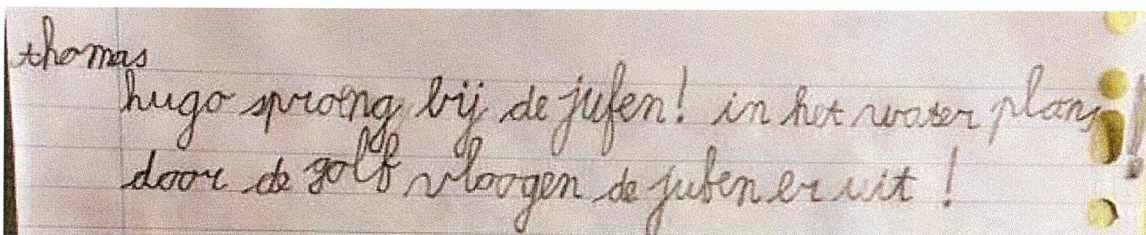 thomas
hugo sproeng bij de jufen! in het water plons!
door de golf vloogen de jufen er uit!